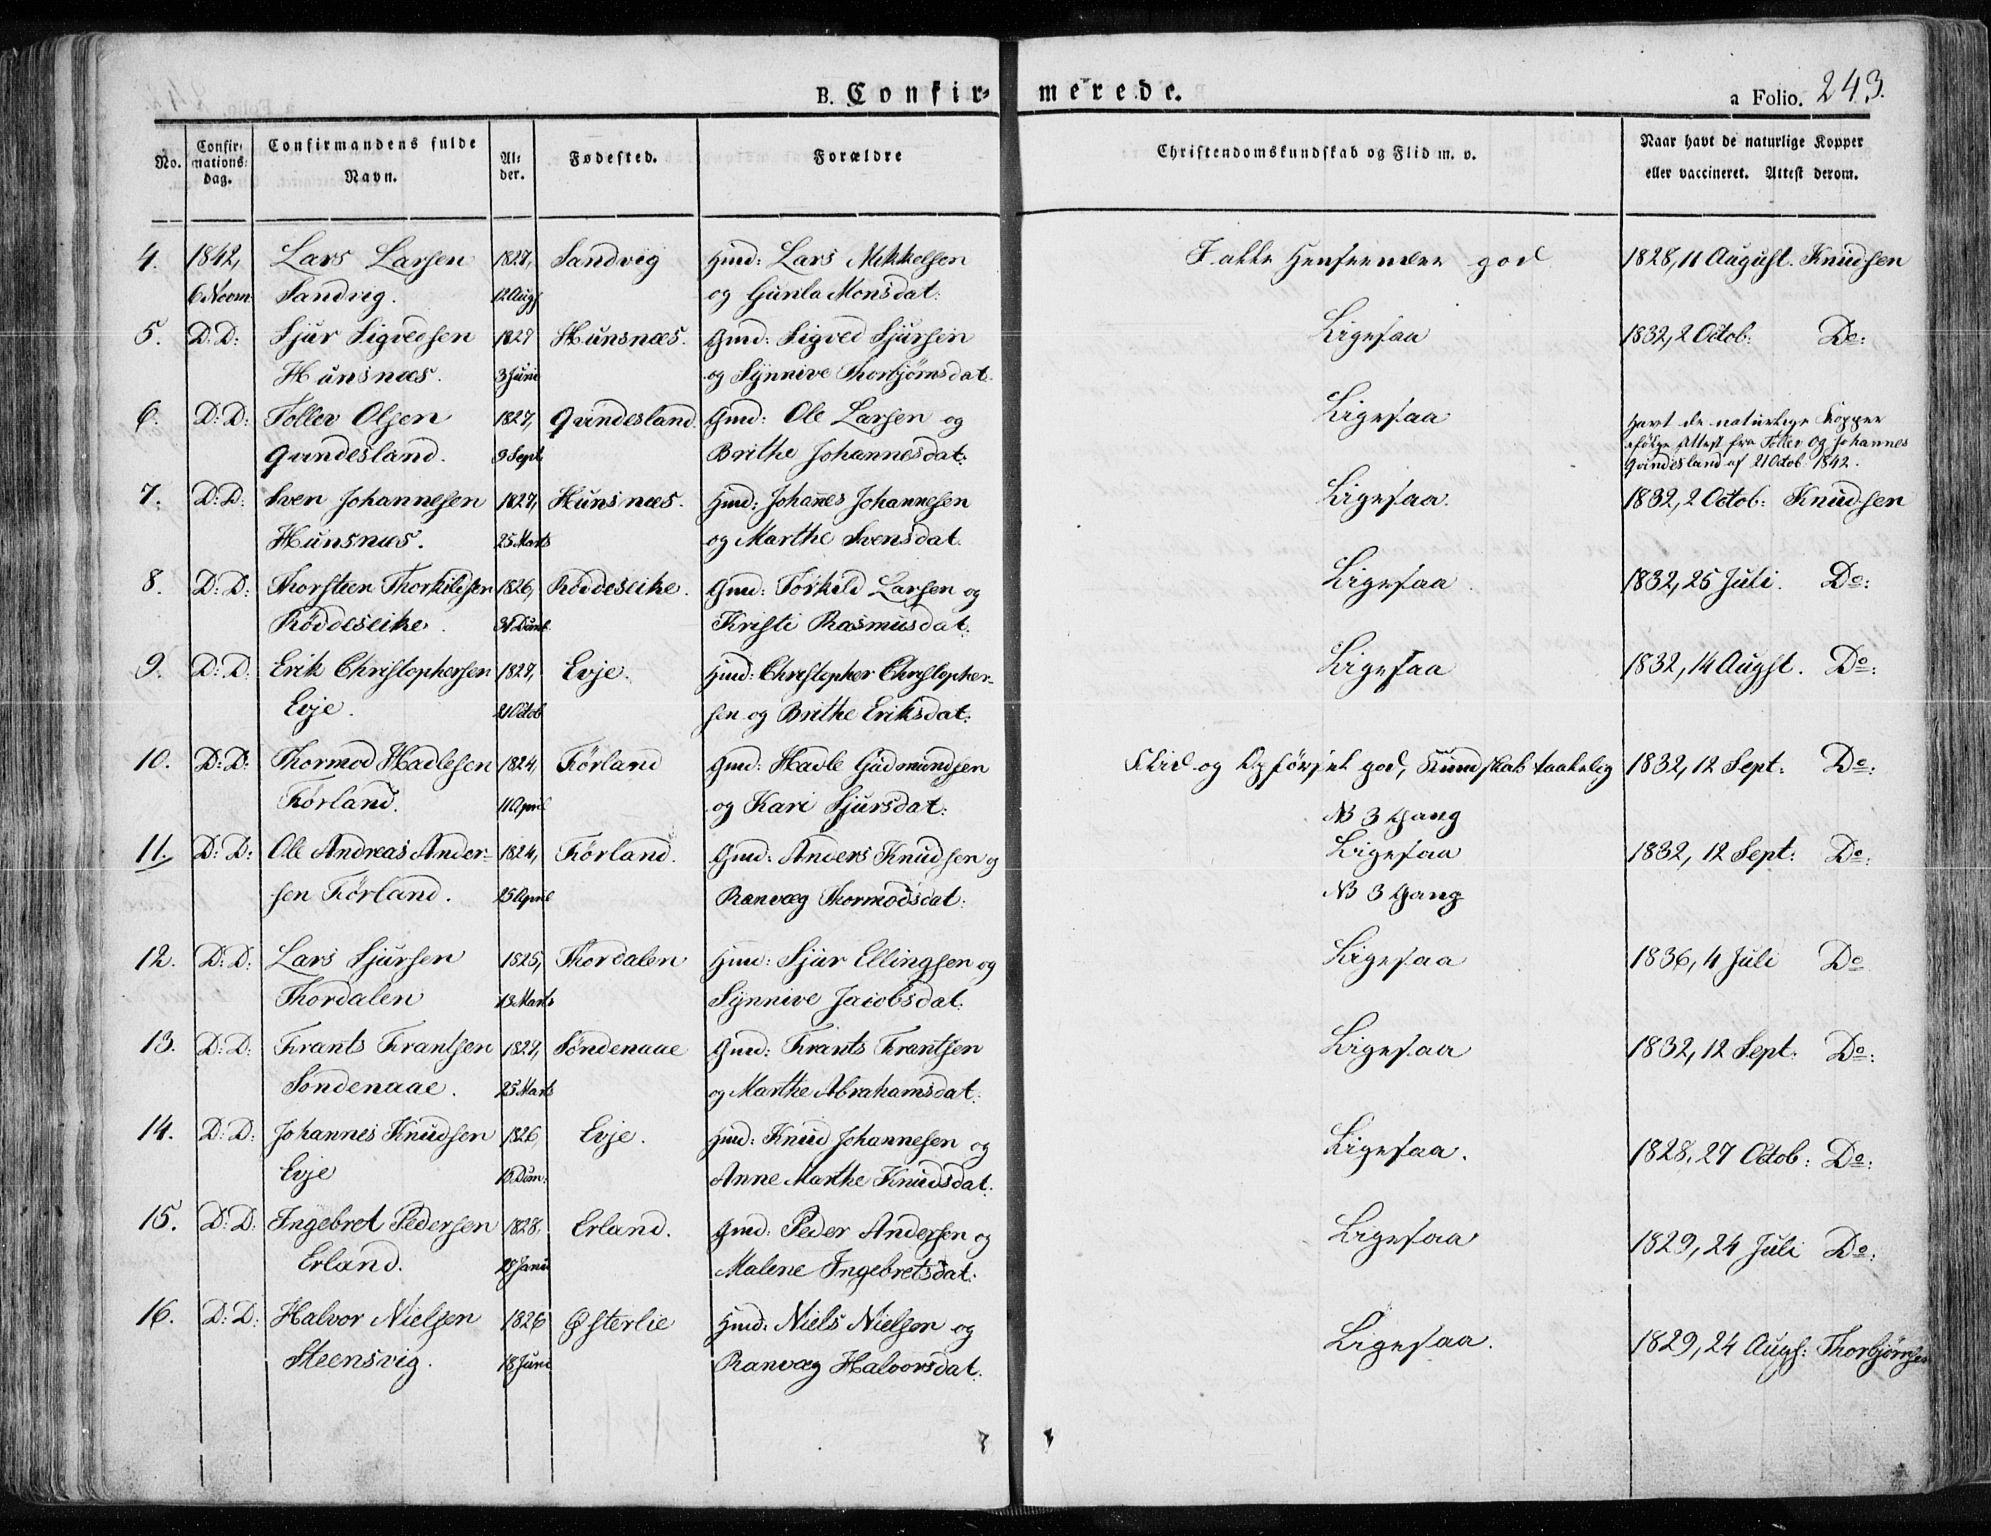 B. Confirmerede. a Folio. 243.
No. Confirmationsdag. Confirmandens fulde Navn. Alder. Fødested. Forældre Christendomskundskab og Flid m. v. Naar havt de naturlige Kopper eller vaccineret. Attest derom.
4. 1842, Lars Larsen 1827, Sandvig Gmd: Lars Mikkelsen I alle Henseender god 1828, 11 August. Knudsen
6 Novm Sandvig. 12 Augs og Gunla Monsdat:
5. D: D: Sjur Sigvedsen 1827 Hunsnæs. Gmd: Sigved Sjursen Ligesaa 1832, 2 Octob: Do:
Hunsnæs. 3 Juni og Synnive Thorbjørnsdat.
6. D: D: Toller Olsen 1827, Qvindesland. Gmd: Ole Larsen og Ligesaa Havt de naturlige Kopper
Qvindesland. 9 Sept. Brithe Johannesdat: ifølge Attest fra Toller og Johannes
Qvindesland af 21 Octob. 1842.
7. D: D: Sven Johannesen 1827, Hunsnæs. Gmd: Johanes Johannesen Ligesaa. 1832, 2 Octob: Knudsen
Hunsnæs. 25 Marts og Marthe Svensdat.
8. D: D: Thorsteen Thorkildsen 1826, Röddeseike. Gmd: Torkild Larsen og Ligesaa. 1832, 25 Juli. Do:
Röddeseike. Kristi Rasmusdat:
9. D: D: Erik Christophersen 1827, Evje. Gmd: Christopher Christopher- Ligesaa 1832, 14 Augst. Do:
Evje. 21 Octob sen og Brithe Eriksdat:
10. D: D: Thormod Hadlesen 1824, Førland Gmd: Hadle Gudmundsen Flid og Opførsel god, Kundskab taalelig 1832, 12 Sept: Do:
Førland. 11 April og Kari Sjursdat: NB 3 Gang
11. D: D: Ole Andreas Ander- 1824, Førland. Gmd: Anders Knudsen og Ligesaa 1832, 12 Sept: Do:
sen Førland. 25 April Ranvæg Thormodsdat: NB 3 Gang
12. D: D: Lars Sjursen 1825, Thordalen Gmd: Sjur Ellingsen og Ligesaa 1836, 4 Juli Do
Thordalen 13 Marts Synnive Jacobsdat:
13. D: D: Frants Frantsen 1827, Söndenaae Gmd: Frants Frantsen Ligesaa 1832, 12 Sept: Do:
Sondenaae. 25 Marts og Marthe Abrahamsdat:
14. D: D: Johannes Knudsen 1826, Evje. Gmd: Knud Johannesen og Ligesaa. 1828, 27 Octob: Do:
Evje Anne Marthe Knudsdat:
15. D: D: Ingebret Pedersen 1828, Erland. Gmd: Peder Andersen og Ligesaa 1829, 24 Juli Do:
Erland. Malene Ingebretsdat:
16. D: D: Halvor Nielsen 1826 Østerlie Gmd: Niels Nielsen og Ligesaa. 1829, 24 Augs: Thorbjørnsen
Steensvig. 18 Juni Ranvæg Halvorsdat: